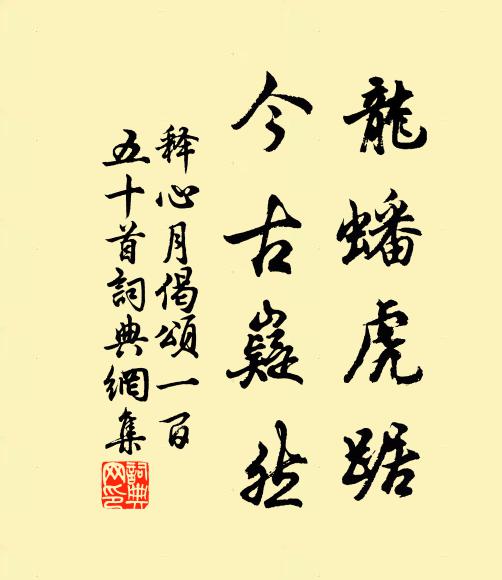 龍蟠虎踞
今古嶷然
释心月偈頌一百
五十首詞典網集
詞典
网印